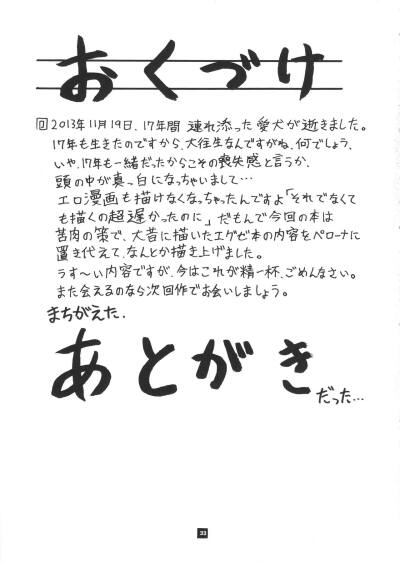 おくづけ
回2013年11月19日、17年間 連れ添った愛犬が逝きました。
17年も生きたのですから、大往生なんですがね、何でしょう、
いや、17年も一緒だったからこその喪失感と言うか、
頭の中が真っ白になっちゃいまして…
エロ漫画も描けなくなっちゃったんですよ「それでなくて
も描くの超遅かったのに」だもんで今回の本は
苦肉の策で、大昔に描いたエグゼ本の内容をペローナに
置き代えて、なんとか描き上げました。
うす〜い内容ですが、今はこれが精一杯、ごめんなさい。
また会えるのなら次回作でお会いしましょう。
まちがえた、
あとがき
だった…
33